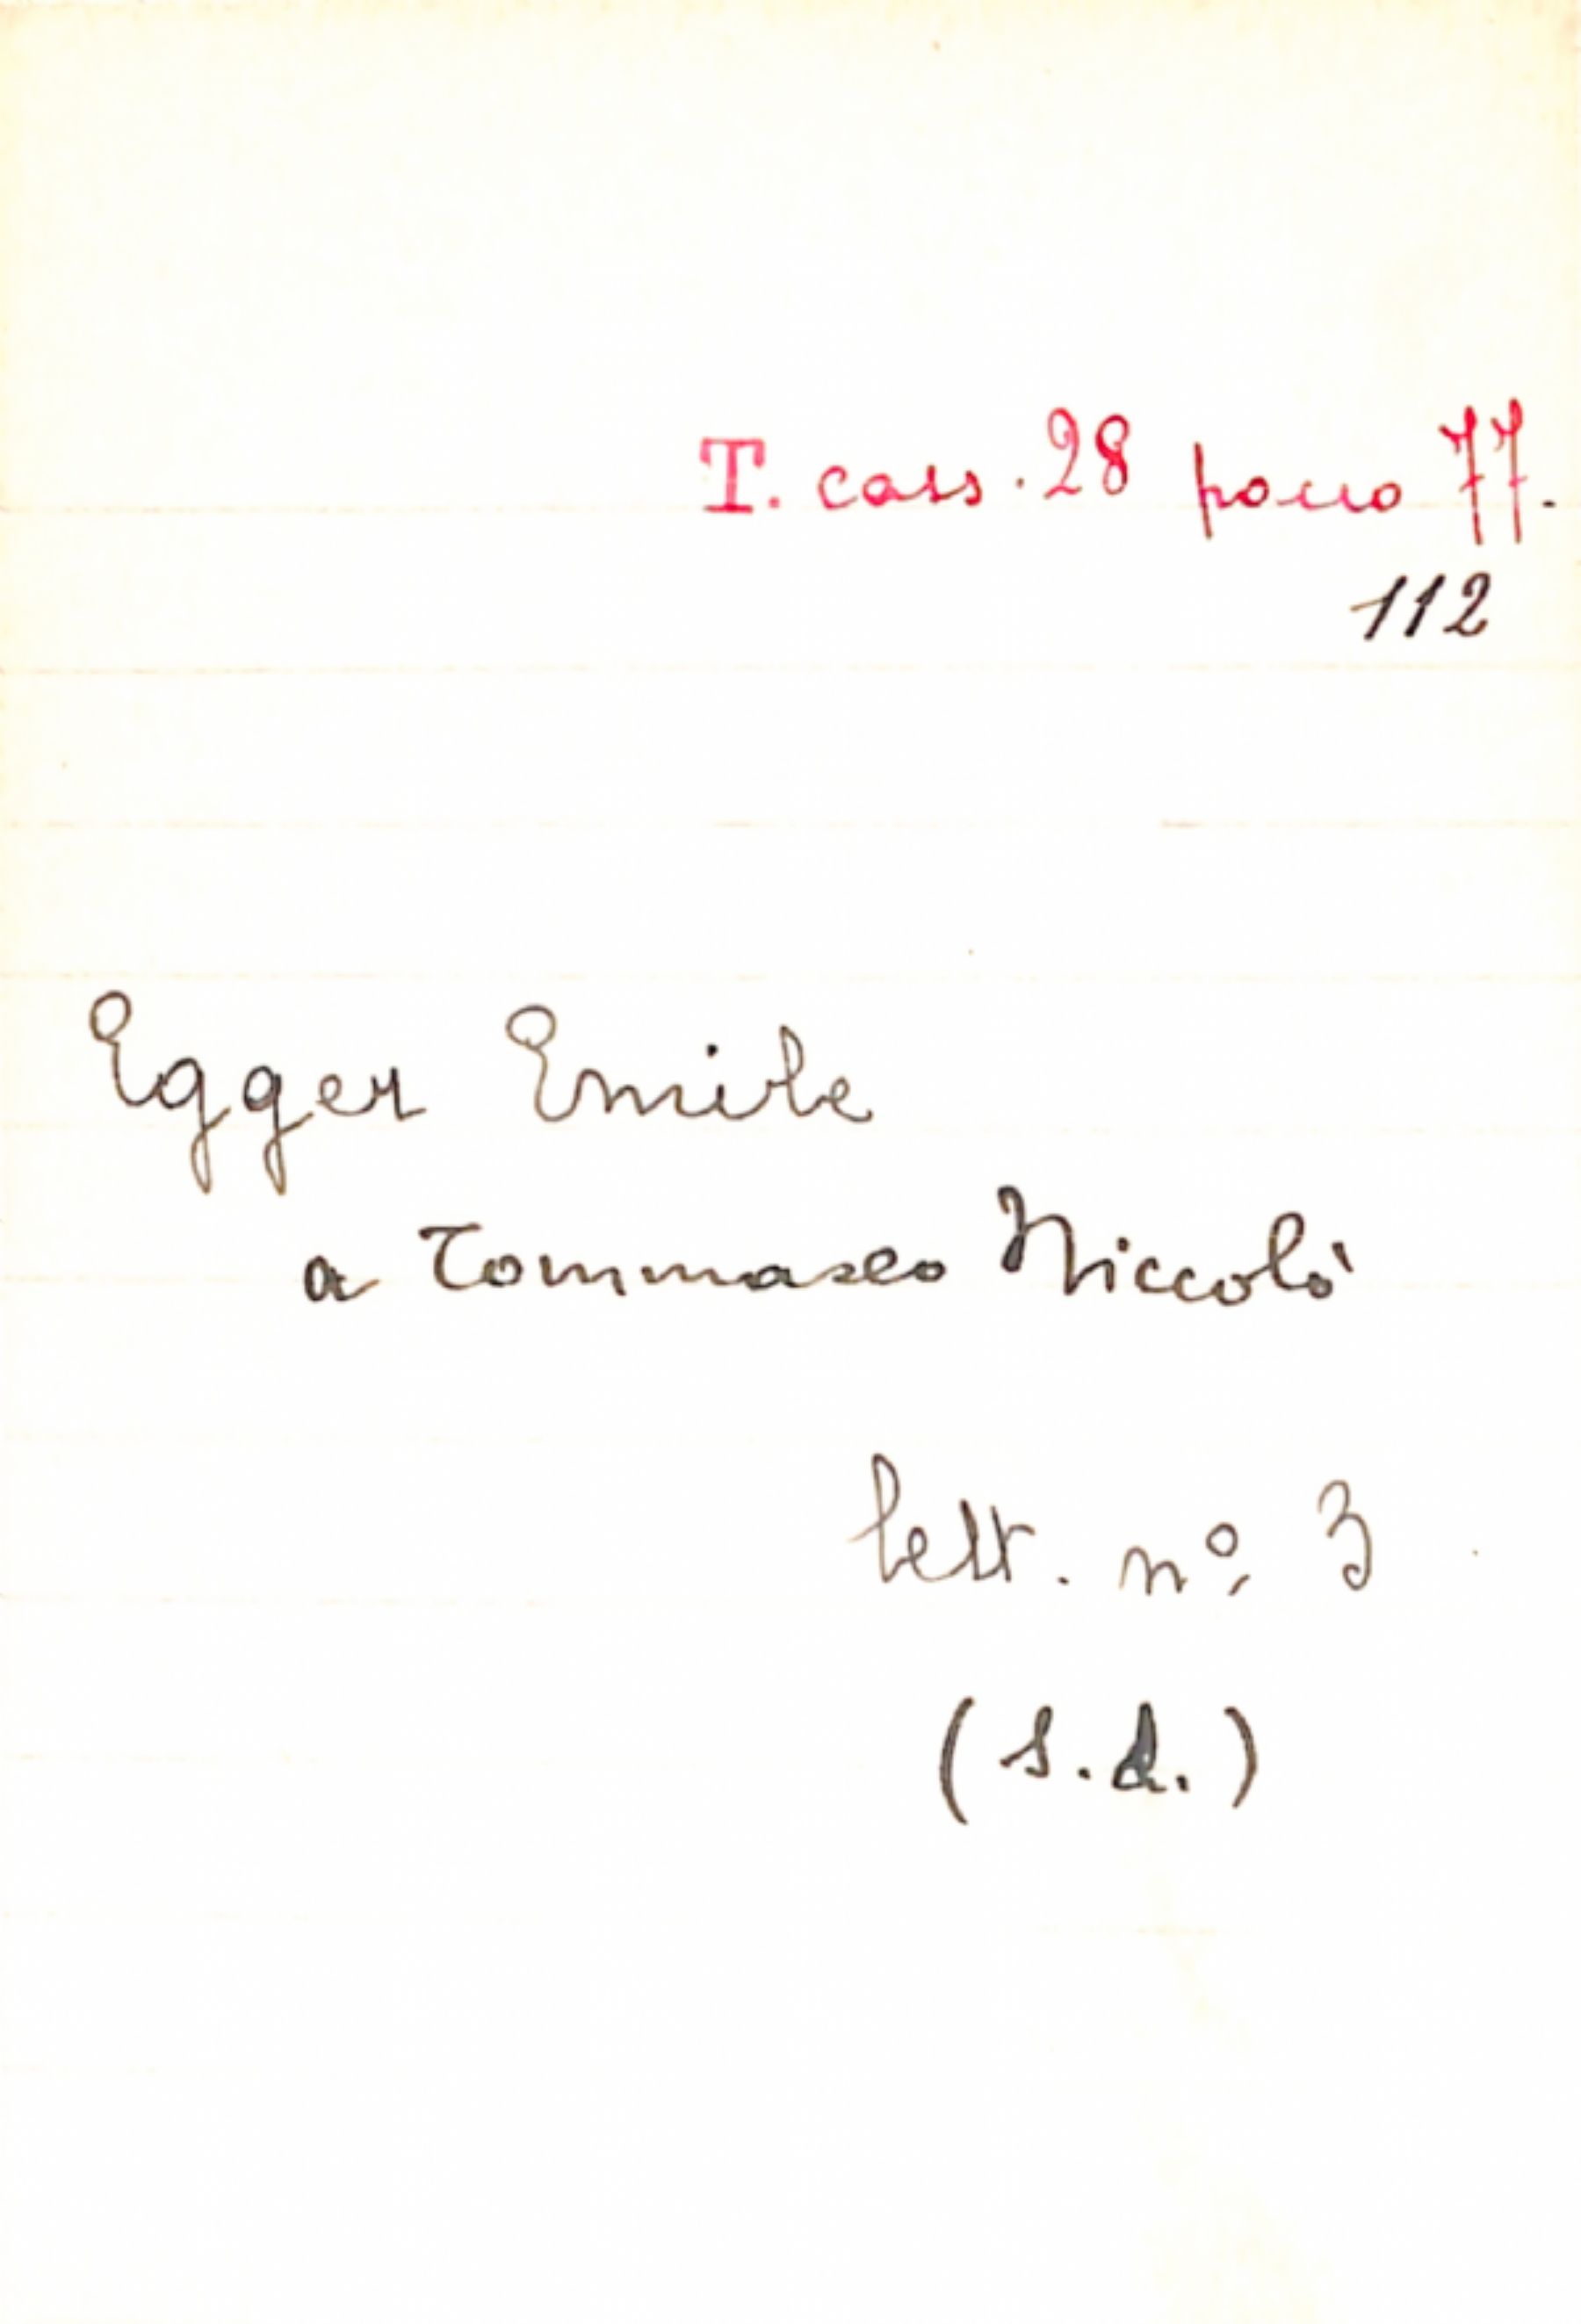 T. cass. 28 pacco 77.
112
Egger Emile
a Tommaseo Niccolò
lett. nº 3
(s.d.)